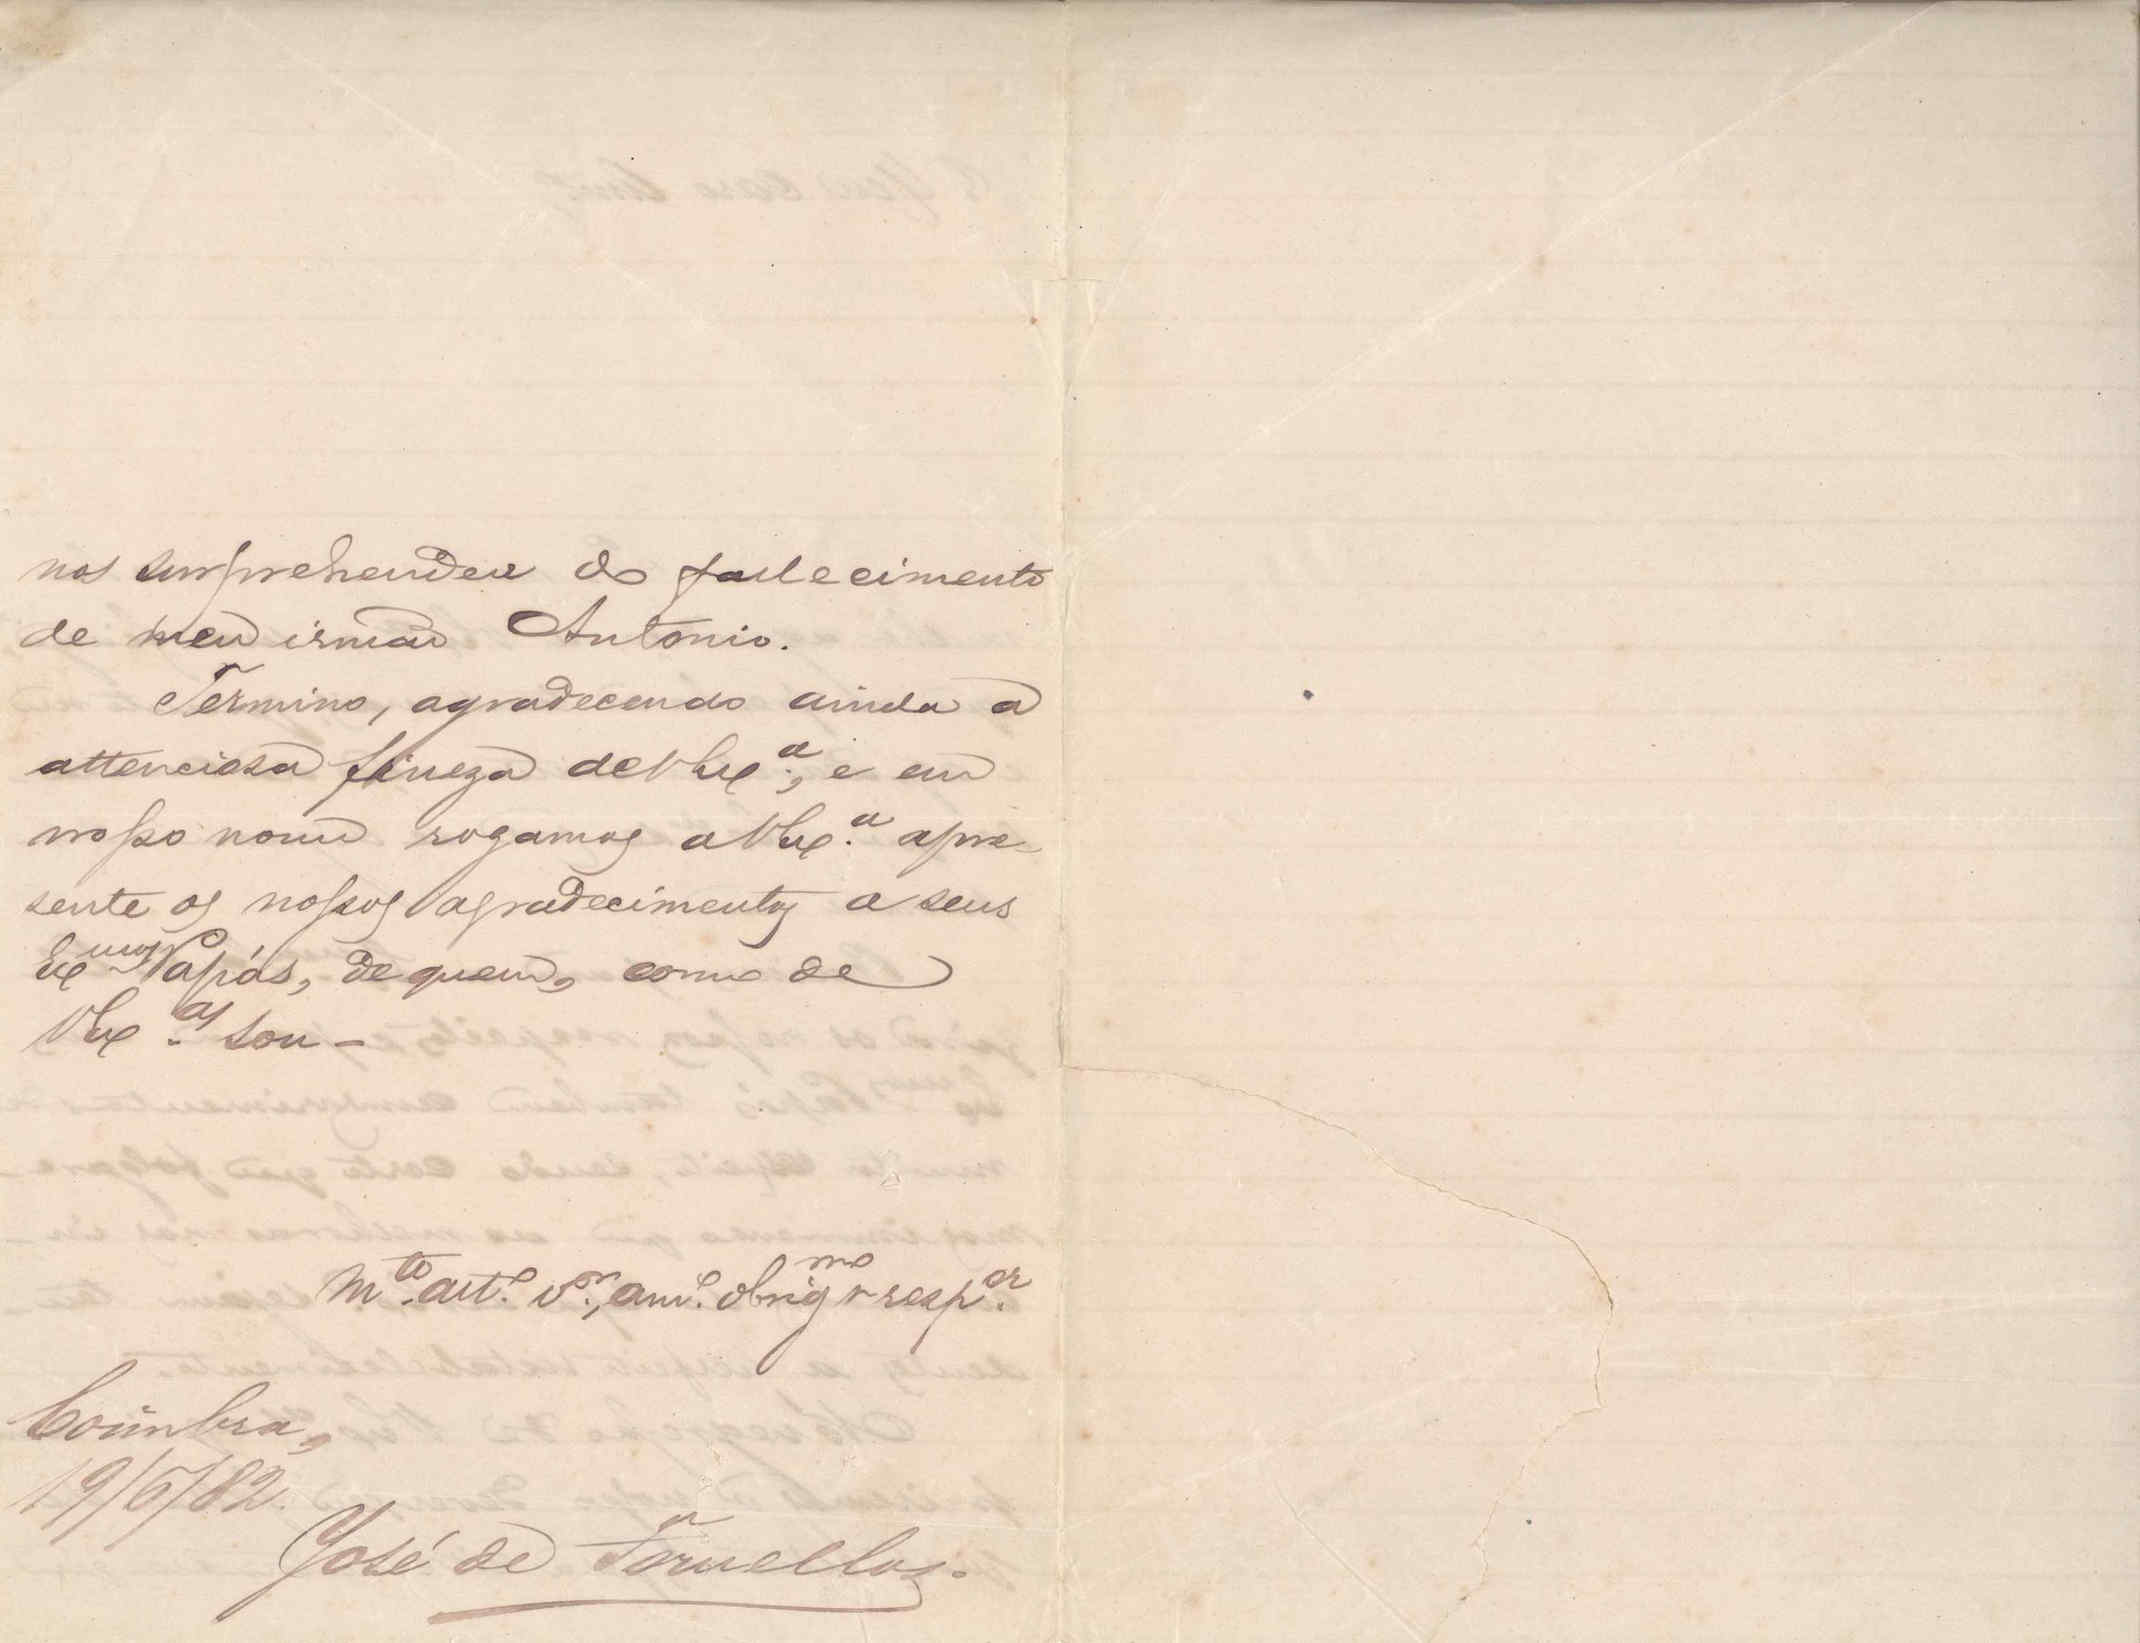 nos surprehendeu do fallecimento
de meu irmão Antonio.
Termino, agradecendo ainda a
attenciosa fineza de V Ex.ª, e em
nosso nome rogamos a V Ex.ª apre-
sente os nossos agradecimentos a seus
Ex.mos Papás, de quem, como de
V Ex.as sou –
M.to att.º v.or, am.º obrig.mo e resp.or
Coimbra,
19/6/82.
José de Fornellos.